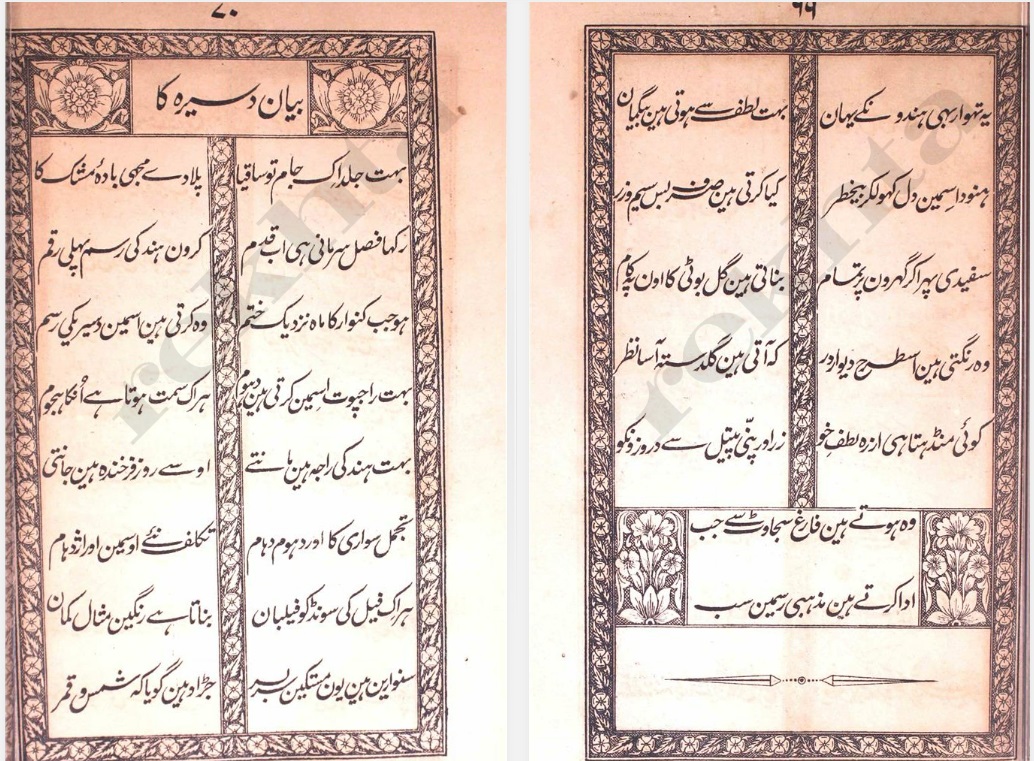 ۶۹
یہ تہوار بہی ہندو ونکے یہان بہت لطف سے ہوتی ہین بیگمان
ہنود اسمین دل کہولکر بیخطر کیا کرتی ہین صرف بس سیم و زر
سفیدی پہرا کر گہرون پر تمام بناتی ہین گل بوٹی کا اون پہ کام
وہ رنگتی ہین اسطرح دیوار در کہ آتی ہین گلدستہ آسا نظر
کوئی منڈہتا ہی ازرہ لطف خو زر اور پنّی پیتل سے در وزنکو
وہ ہوتے ہین فارغ سجاوٹ سے جب
ادا کرتے ہین مذہبی رسمین سب
۷۰
بیان دسیرہ کا
بہت جلد اک جام تو ساقیا پلا دے مجھی بادۂ مشک سا
رکہا فصل سرمانی ہی اب قدم کرون ہند کی رسم پہلی رقم
ہو جب کنوار کا ماہ نزدیک ختم وہ کرتی ہین اسمین دسیریکی رسم
بہت راجپوت اسمین کرتی ہین دہوم ہر اک سمت ہوتا ہے اُنکا ہجوم
بہت ہند کی راجہ ہین مانتے اوسے روز فرخندہ ہین جانتی
تجمل سواری کا اور دہوم دہام تکلف نئے اوسمین اور اژدہام
ہر اک فیل کی سونڈ کو فیلبان بناتا ہے رنگین مثال کمان
سنواین ہین یون مستکین سر بسر جڑاو ہین گویا کہ شمس و قمر
rekhta
rekhta